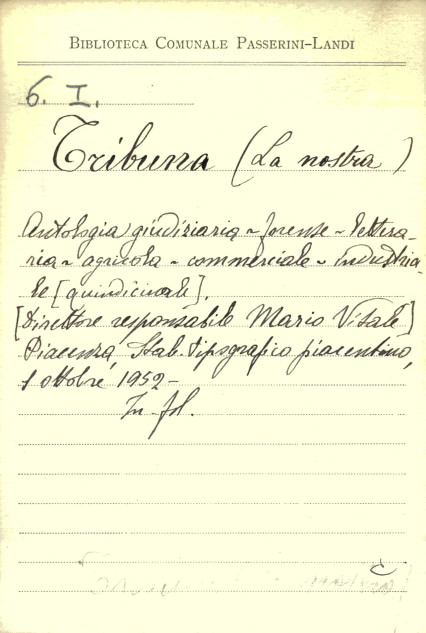 BIBLIOTECA COMUNALE PASSERINI-LANDI
6. I.
Tribuna (La nostra)
Antologia giudiziaria - forense - lettera-
ria - agricola - commerciale - industria-
le [quindicinale].
[Direttore responsabile Mario Vitale]
Piacenza, Stab. tipografico piacentino,
1 ottobre 1952 -
In fol.